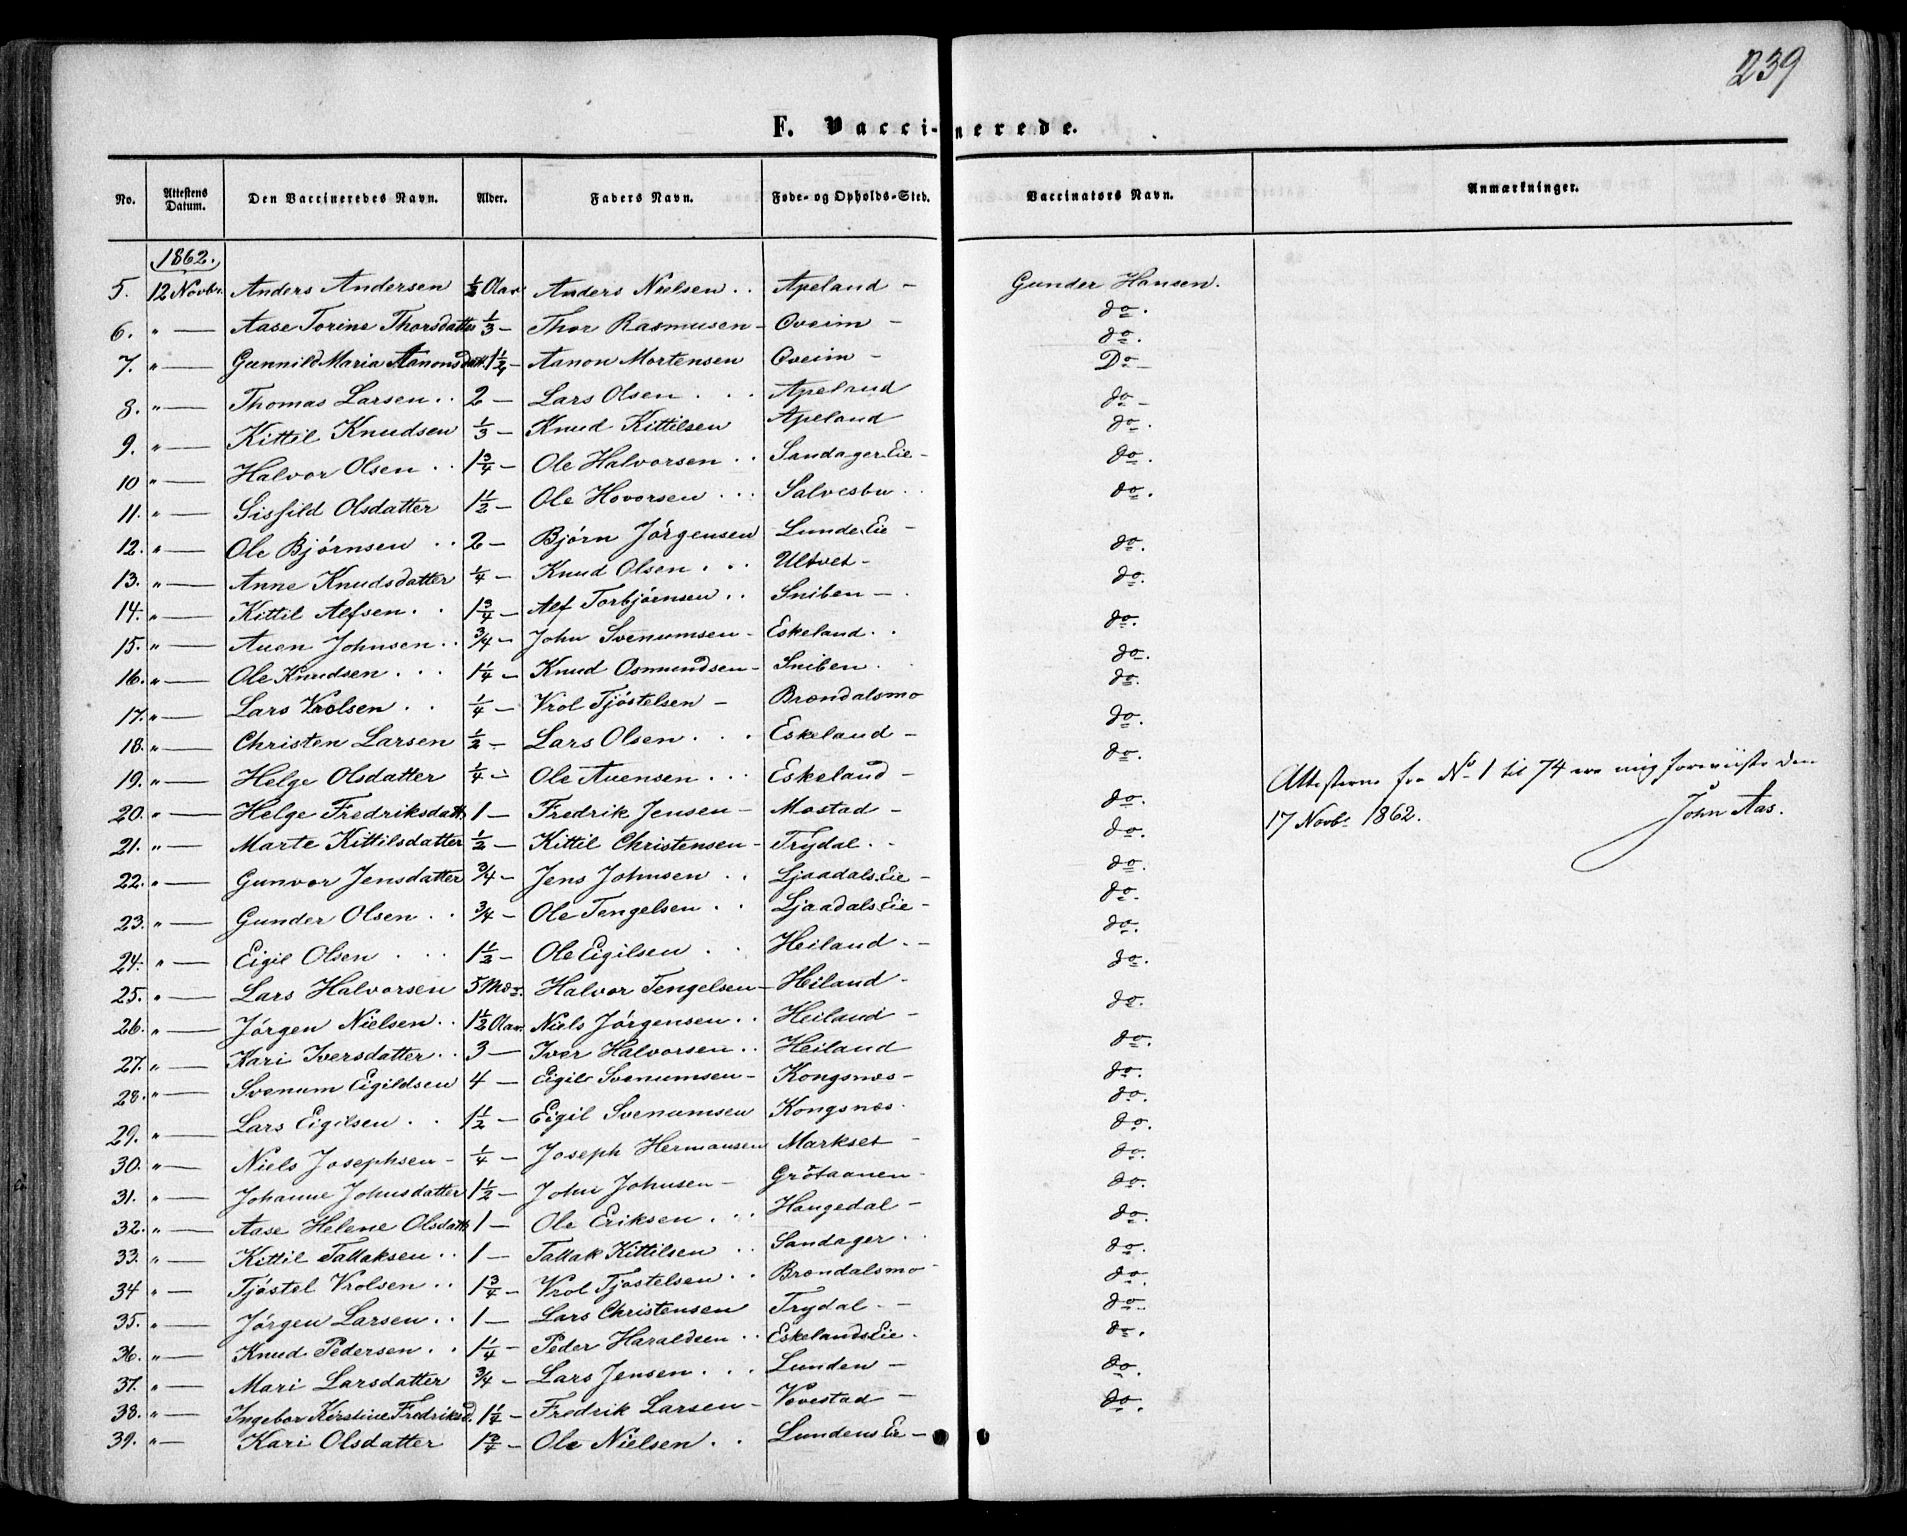 239
F. Vaccinerede.
No. Attestens Datum. Den Vaccineredes Navn. Alder. Faders Navn. Føde- og Opholds-Sted. Vaccinators Navn. Anmærkninger.
1862.
5. 12 Novbr. Anders Andersen ½ Aar Anders Nielsen Apeland – Gunder Hansen.
6. " — Aase Torine Thorsdatter ⅓ – Thor Rasmusen – Oveim – do.
7. " — Gunnild Maria Aanonsdatt. 1½ – Aanon Mortensen Oveim – do.
8. " — Thomas Larsen 2 – Lars Olsen Apeland Do –
9. " — Kittil Knudsen ⅓ – Knud Kittilsen Apeland do –
10 " — Halvor Olsen 1¾ – Ole Halvorsen Sandager Eie – do.
11. " — Sisfild Olsdatter 1½ – Ole Hovorsen Salvesbu do.
12. " — Ole Bjørnsen 2 – Bjørn Jørgensen Lunde Eie – do.
13. " — Anne Knudsdatter ¼ – Knud Olsen Ultvet – do.
14. " — Kittil Alfsen 1¾ – Alf Torbjørnsen Sniben – do.
15. " — Auen Johnsen ¾ – John Svenumsen – Eskeland do.
16. " — Ole Knudsen 1¼ – Knud Osmundsen – Sniben do.
17. " — Lars Vrolsen ¼ – Vrol Tjøstelsen – Brændalsmo do.
18. " — Christen Larsen ½ – Lars Olsen Eskeland – do.
19. " — Helge Olsdatter ¼ – Ole Auensen Eskeland – do.
Attesterne fra No 1 til 74 ere mig foreviiste den
20. " — Helge Fredriksdatt. 1 – Fredrik Jensen – Mostad – do.
17 Novbr 1862. John Aas.
21. " — Marte Kittilsdatter ½ – Kittil Christensen – Trydal do.
22. " — Gunvor Jensdatter ¾ – Jens Johnsen Ljaadals Eie – do.
23. " — Gunder Olsen ¾ – Ole Tengelsen Ljaadals Eie – do.
24. " — Eigil Olsen 1½ – Ole Eigilsen Heiland – do.
25. " — Lars Halvorsen 5 Md. Halvor Tengelsen – Heiland – do.
26. " — Jørgen Nielsen 1½ Aar. Niels Jørgensen Heiland – do.
27. " — Kari Iversdatter 3 — Iver Halvorsen Heiland do.
28. " — Svenum Eigildsen 4 – Eigil Svenumsen – Kongsnæs – do.
29. " — Lars Eigilsen 1½ – Eigil Svenumsen Kongsnæs do.
30. " — Niels Josephsen – ¼ – Joseph Hermansen Markset – do.
31. " — Johanne Johnsdatter 1½ – John Johnsen – Grötaanen – do.
32. " — Aase Helene Olsdatt. 1 – Ole Eriksen Haugedal – do.
33. " — Kittil Tallaksen 1 – Tallak Kittilsen Sandager do.
34 " — Tjøstel Vrolsen 1¾ – Vrol Tjøstelsen Brændalsmo do.
35. " — Jørgen Larsen 1 – Lars Christensen Trydal – do.
36. " — Knud Pedersen 1¼ – Peder Haraldsen Eskelands Eie. do.
37. " — Mari Larsdatter ¾ – Lars Jensen Lunden – do.
38. " — Ingebor Kirstine Fredriksd. 1¼ – Fredrik Larsen – Vovestad – do.
39. " — Kari Olsdatter 1¾ – Ole Nielsen Lundens Eie – do.